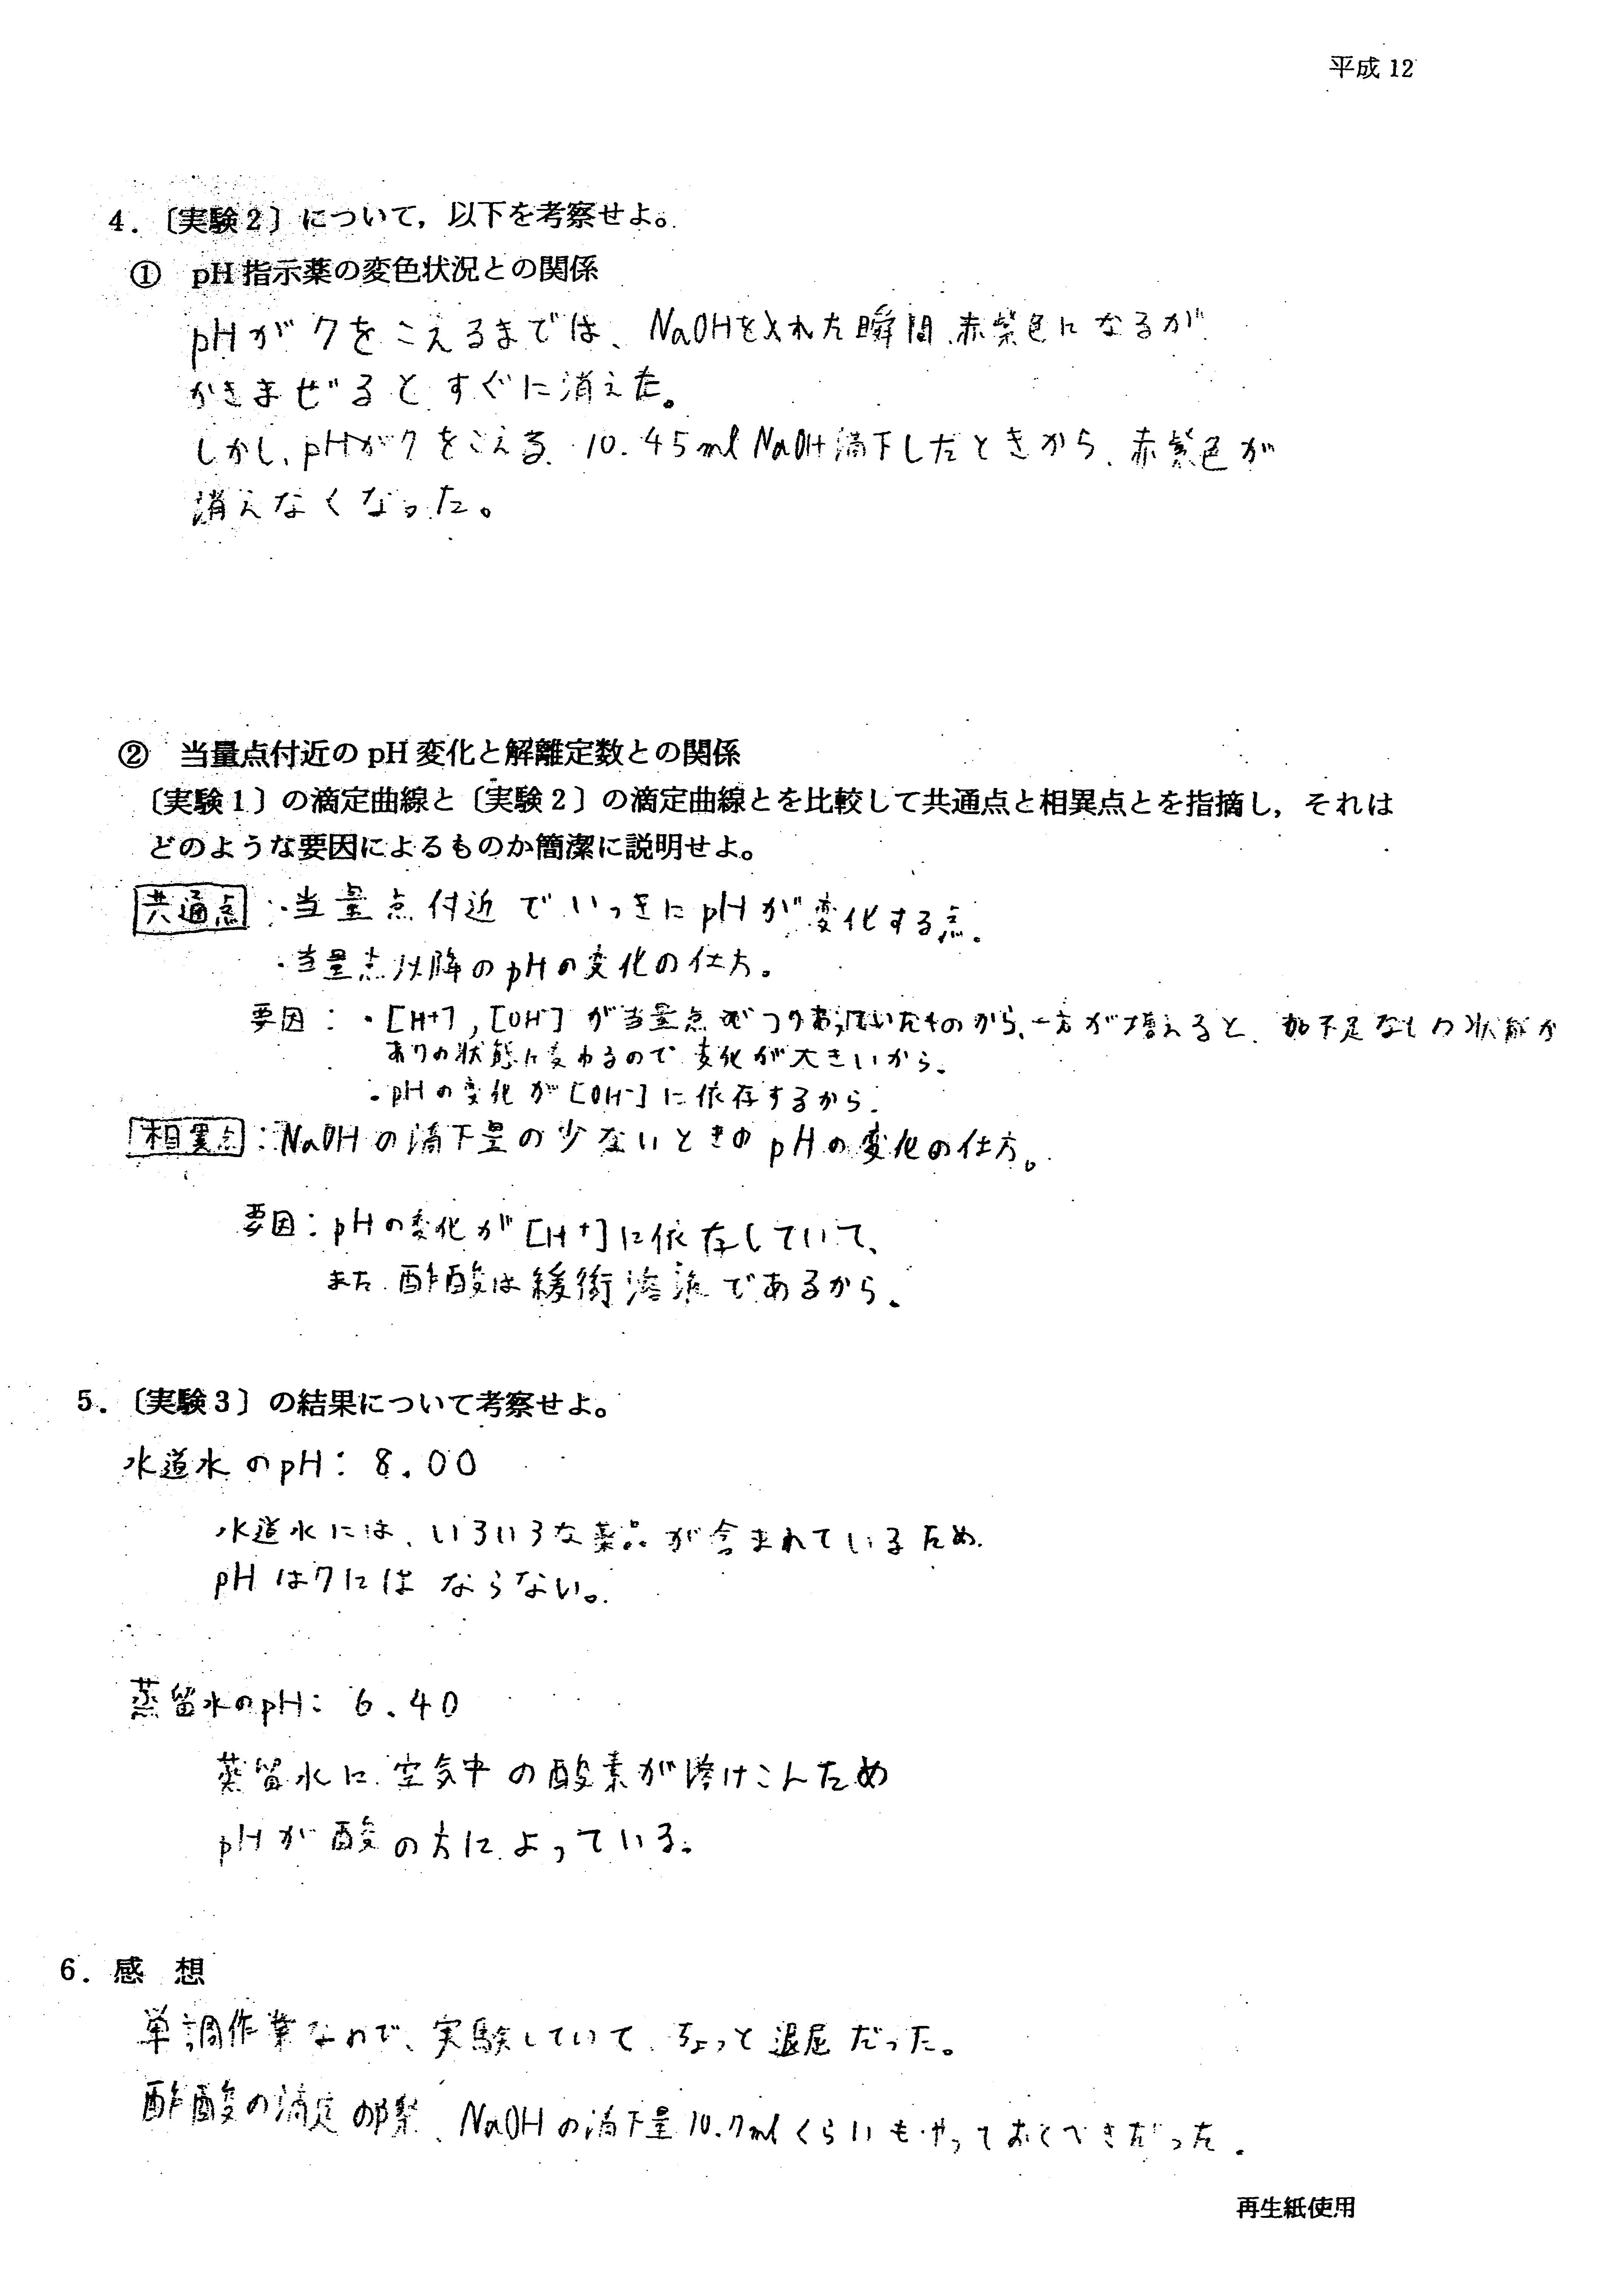 平成 12
4.〔実験2〕について,以下を考察せよ。
① pH指示薬の変色状況との関係
pHが7をこえるまでは、NaOHを入れた瞬間、赤紫色になるが
かきまぜると、すぐに消えた。
しかし、pHが7をこえる、10.45ml NaOH滴下したときから、赤紫色が
消えなくなった。
② 当量点付近のpH変化と解離定数との関係
〔実験1〕の滴定曲線と〔実験2〕の滴定曲線とを比較して共通点と相異点とを指摘し,それは
どのような要因によるものか簡潔に説明せよ。
共通点:・当量点付近でいっきにpHが変化する点。
・当量点以降のpHの変化の仕方。
要因:・[H+],[OH-]が当量点でつりあっていたものから、一方が増えると、過不足なしの状態から
ありの状態に変わるので変化が大きいから。
・pHの変化が[OH-]に依存するから。
相異点:NaOHの滴下量の少ないときのpHの変化の仕方。
要因:pHの変化が[H+]に依存していて、
また、酢酸は緩衝溶液であるから。
5.〔実験3〕の結果について考察せよ。
水道水のpH:8.00
水道水には、いろいろな薬品が含まれているため、
pHは7にはならない。
蒸留水のpH:6.40
蒸留水に、空気中の酸素が溶けこんだため
pHが酸の方によっている。
6.感 想
単調作業なので、実験していて、ちょっと退屈だった。
酢酸の滴定の際、NaOHの滴下量10.7mlくらいもやっておくべきだった。
再生紙使用